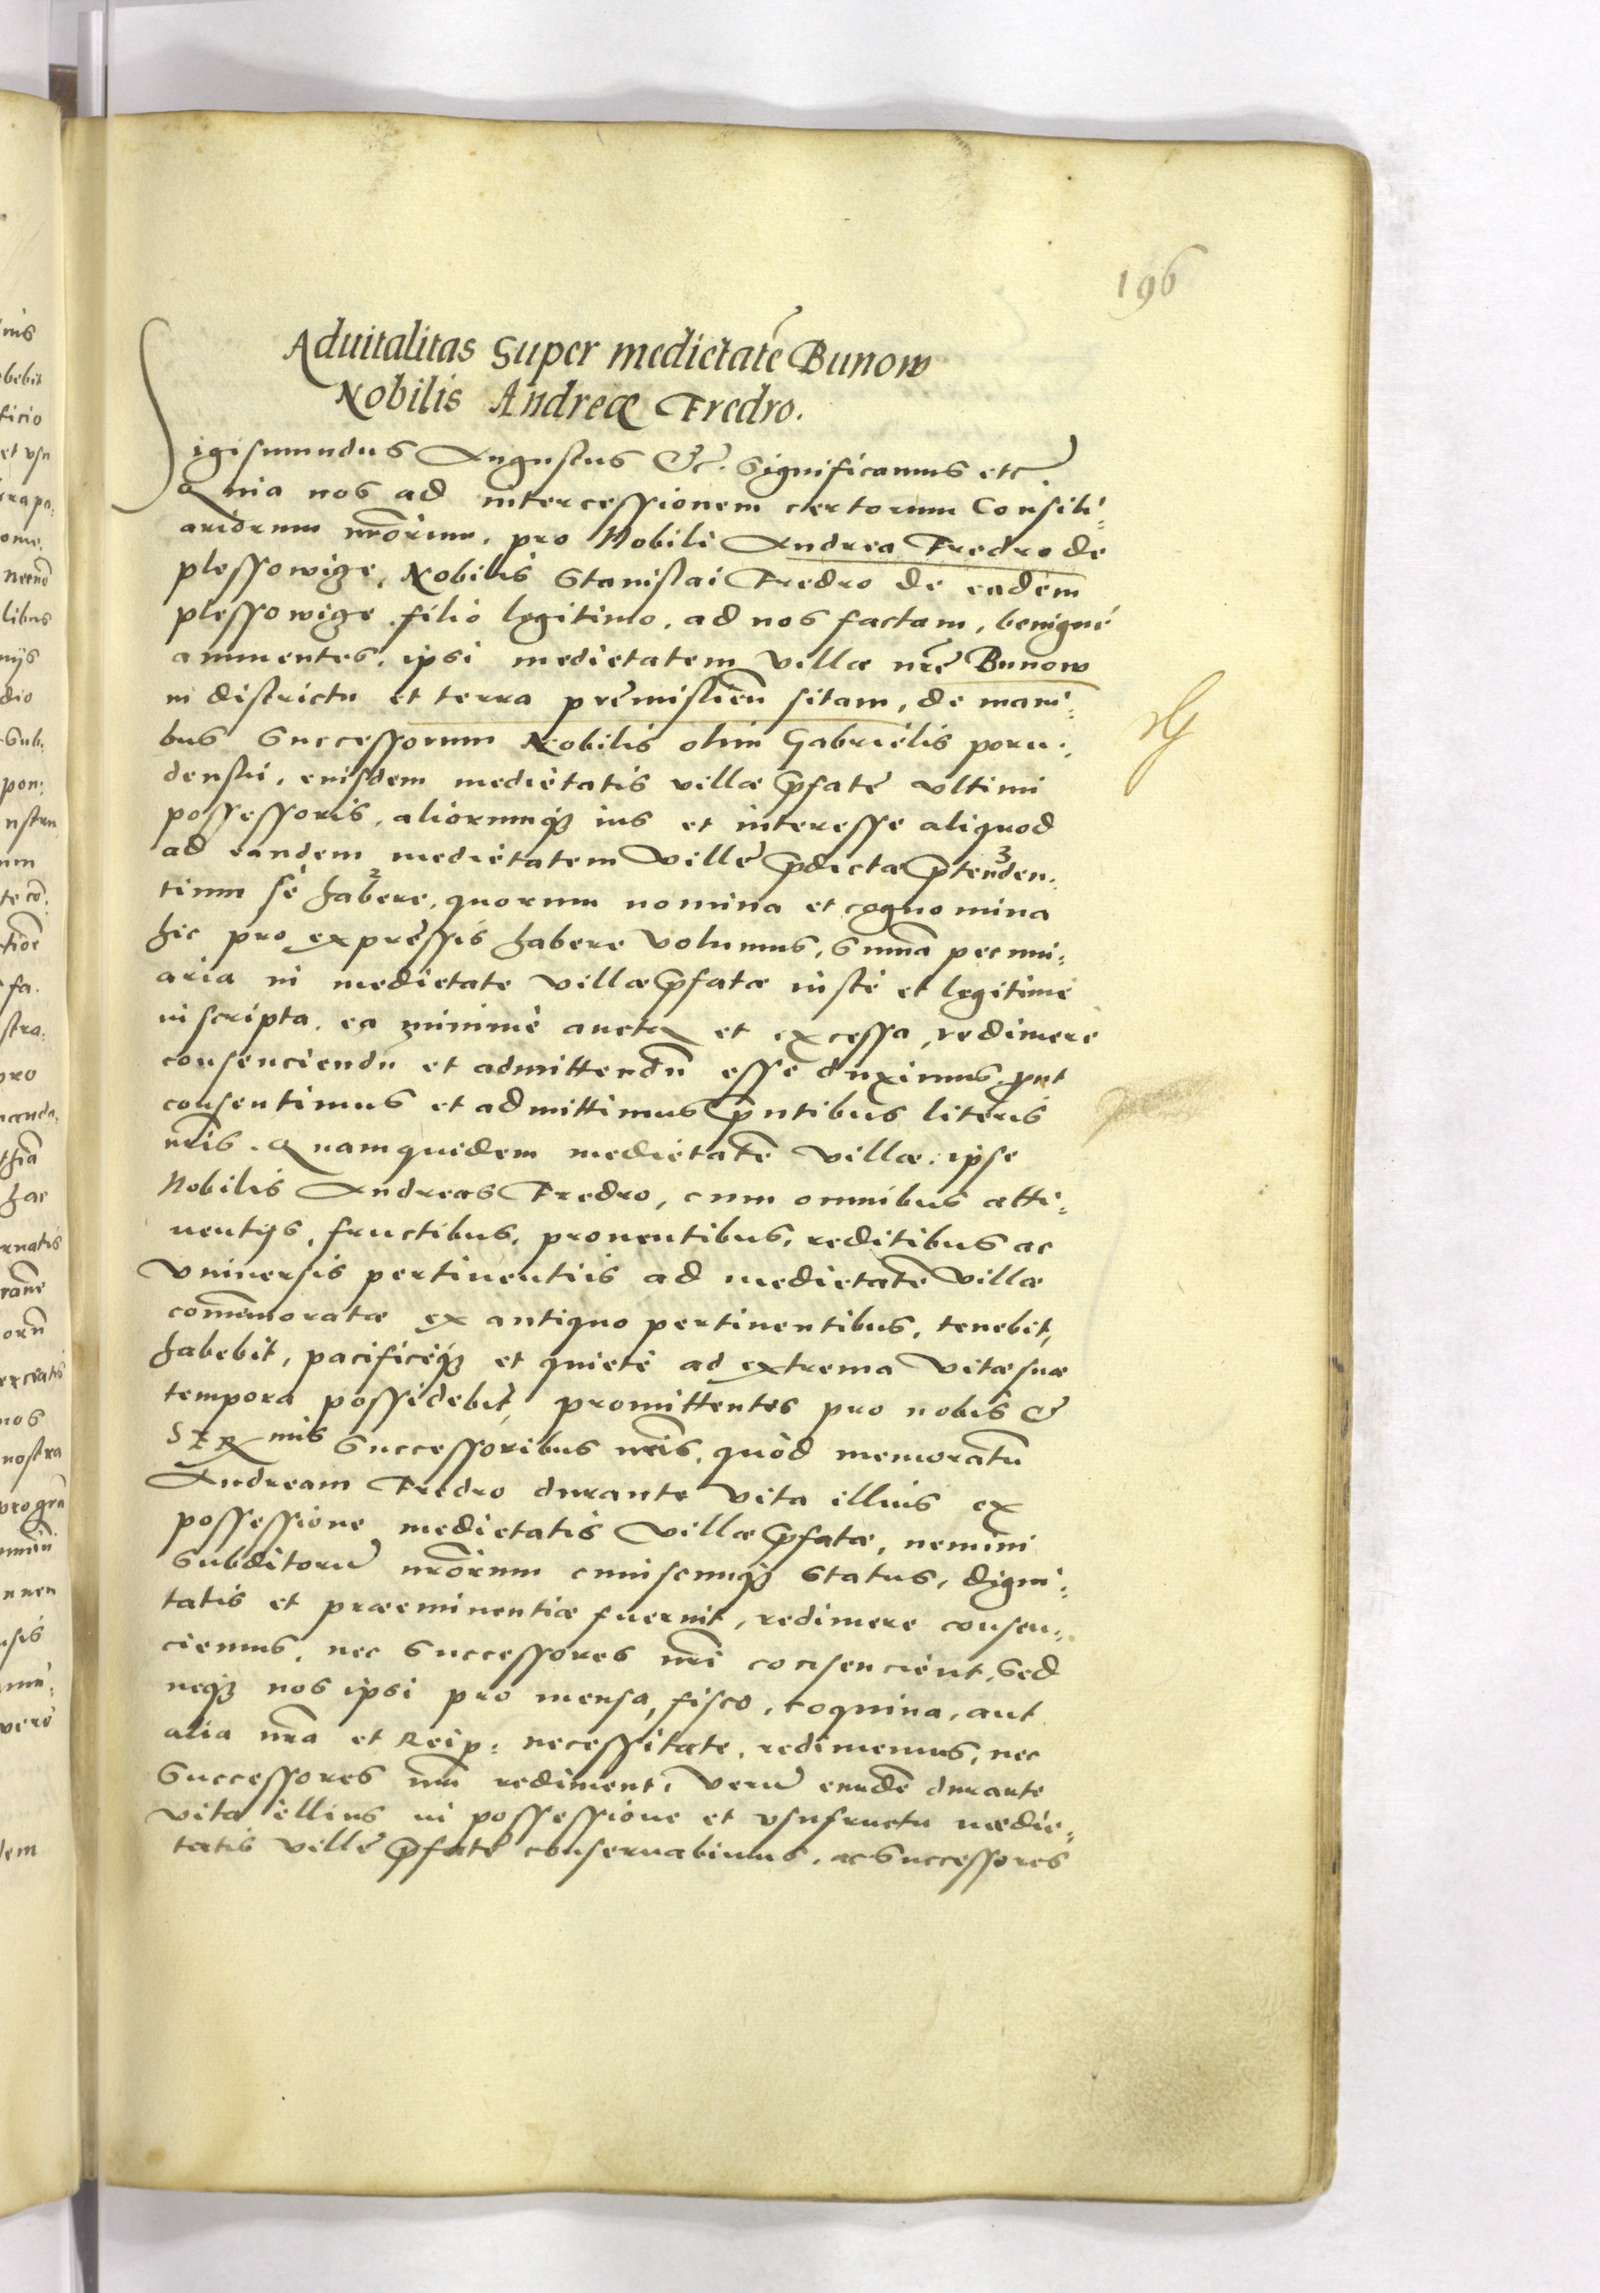 196
Aduitalitas super medietatē Bunow
Nobilis Andreæ Fredro.
Sigismundus Augustus &c. Significamus etc.
Quia nos ad intercessionem certorum Consili=
ariorum nrōrum, pro Nobili Andrea Fredro de
plessowice, Nobilis Stanislai Fredro de eadem
plessowice filio legitimo, ad nos factam, benigné
annuentes, ipsi medietatem villæ nrē Bunow
in districtu et terra premislien̄ sitam, de mani=
bus Successorum Nobilis olim Gabrielis poru=
denski, eiusdem medietatis villæ p̄fate vltimi
possessoris, aliorumq₃ ius et interesse aliquod
ad eandem medietatem Ville p̄dictæ p̄tenden=
3
tium se habere, quorum nomina et cognomina
2
hic pro expressis habere volumus, Summa pecuni=
aria in medietate villæ p̄fatæ iustè et legitimè
inscripta, ea minimè aucta et excessa, redimere
consenciendū et admittendū esse duximus, put
consentimus et admittimus p̄ntibus literis
nrīs. Quamquidem medietatē villæ, ipse
Nobilis Andreas Fredro, cum omnibus atti=
nentijs, fructibus, prouentibus, reditibus ac
Vniuersis pertinentiis ad medietatē villæ
com̄emoratæ ex antiquo pertinentibus, tenebit,
habebit, pacificèq₃ et quietè ad extrema Vitæ suæ
tempora possidebit, promittentes pro nobis &
SER mis Successoribus nrīs, quòd memoratū
Andream Fredro durante vita illius ex
possessione medietatis Villæ p̄fatæ, nemini
Subditorū nrōrum cuiuscunq₃ Status, digni=
tatis et præeminentiæ fuerint, redimere consen=
ciemus, nec Successores nrī consencient, Sed
neq₃ nos ipsi pro mensa, fisco, coquina, aut
alia nrā et Reip: necessitate, redimemus, nec
Successores nrī rediment, verū eundē durante
vita illius in possessione et vsufructu medie=
tatis Villè p̄fatè conseruabimus, ac Successores